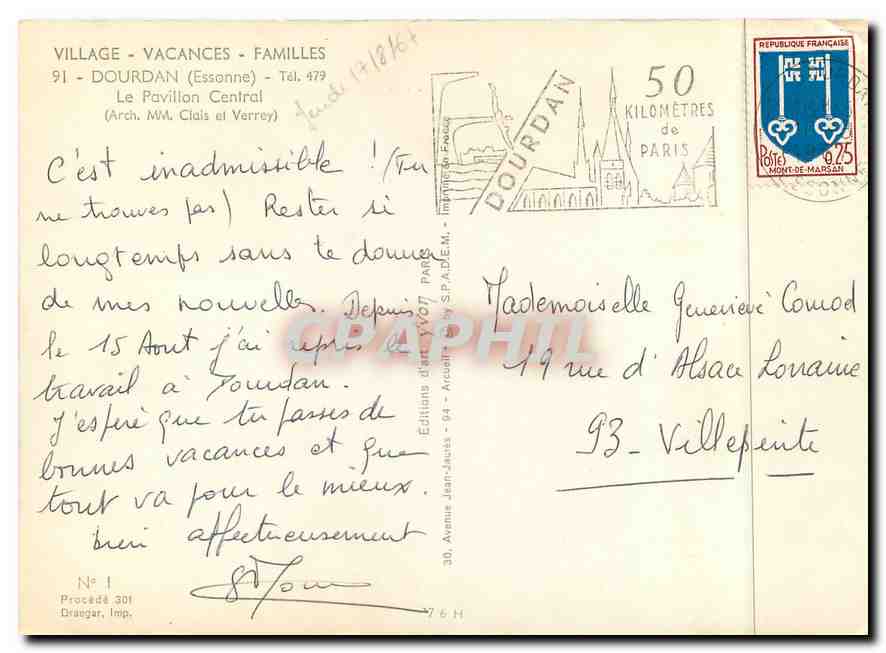 VILLAGE - VACANCES - FAMILLES
91 - DOURDAN (Essonne) - Tél. 479
Le Pavillon Central
(Arch. MM. Clais et Verrey)
Jeudi 17/8/67
C'est inadmissible ! (Tu
ne trouves pas) Rester si
longtemps sans te donner
de mes nouvelles. Depuis
le 15 Aout j'ai repris le
travail à Dourdan.
J'espère que tu passes de
bonnes vacances et que
tout va pour le mieux.
bien affectueusement
N° 1
Procédé 301
Draeger, Imp.
Editions d'art yvon PARIS
30, Avenue Jean-Jaurès - 94 - Arcueil - by S.P.A.D.E.M. - Imprimé en France
76 H
DOURDAN
50
KILOMÈTRES
de
PARIS
REPUBLIQUE FRANÇAISE
POSTES 0,25
MONT-DE-MARSAN
ESSONNE
Mademoiselle Geneviève
19 rue d'Alsace Lorraine
93 - Villepinte
CPAPHIL